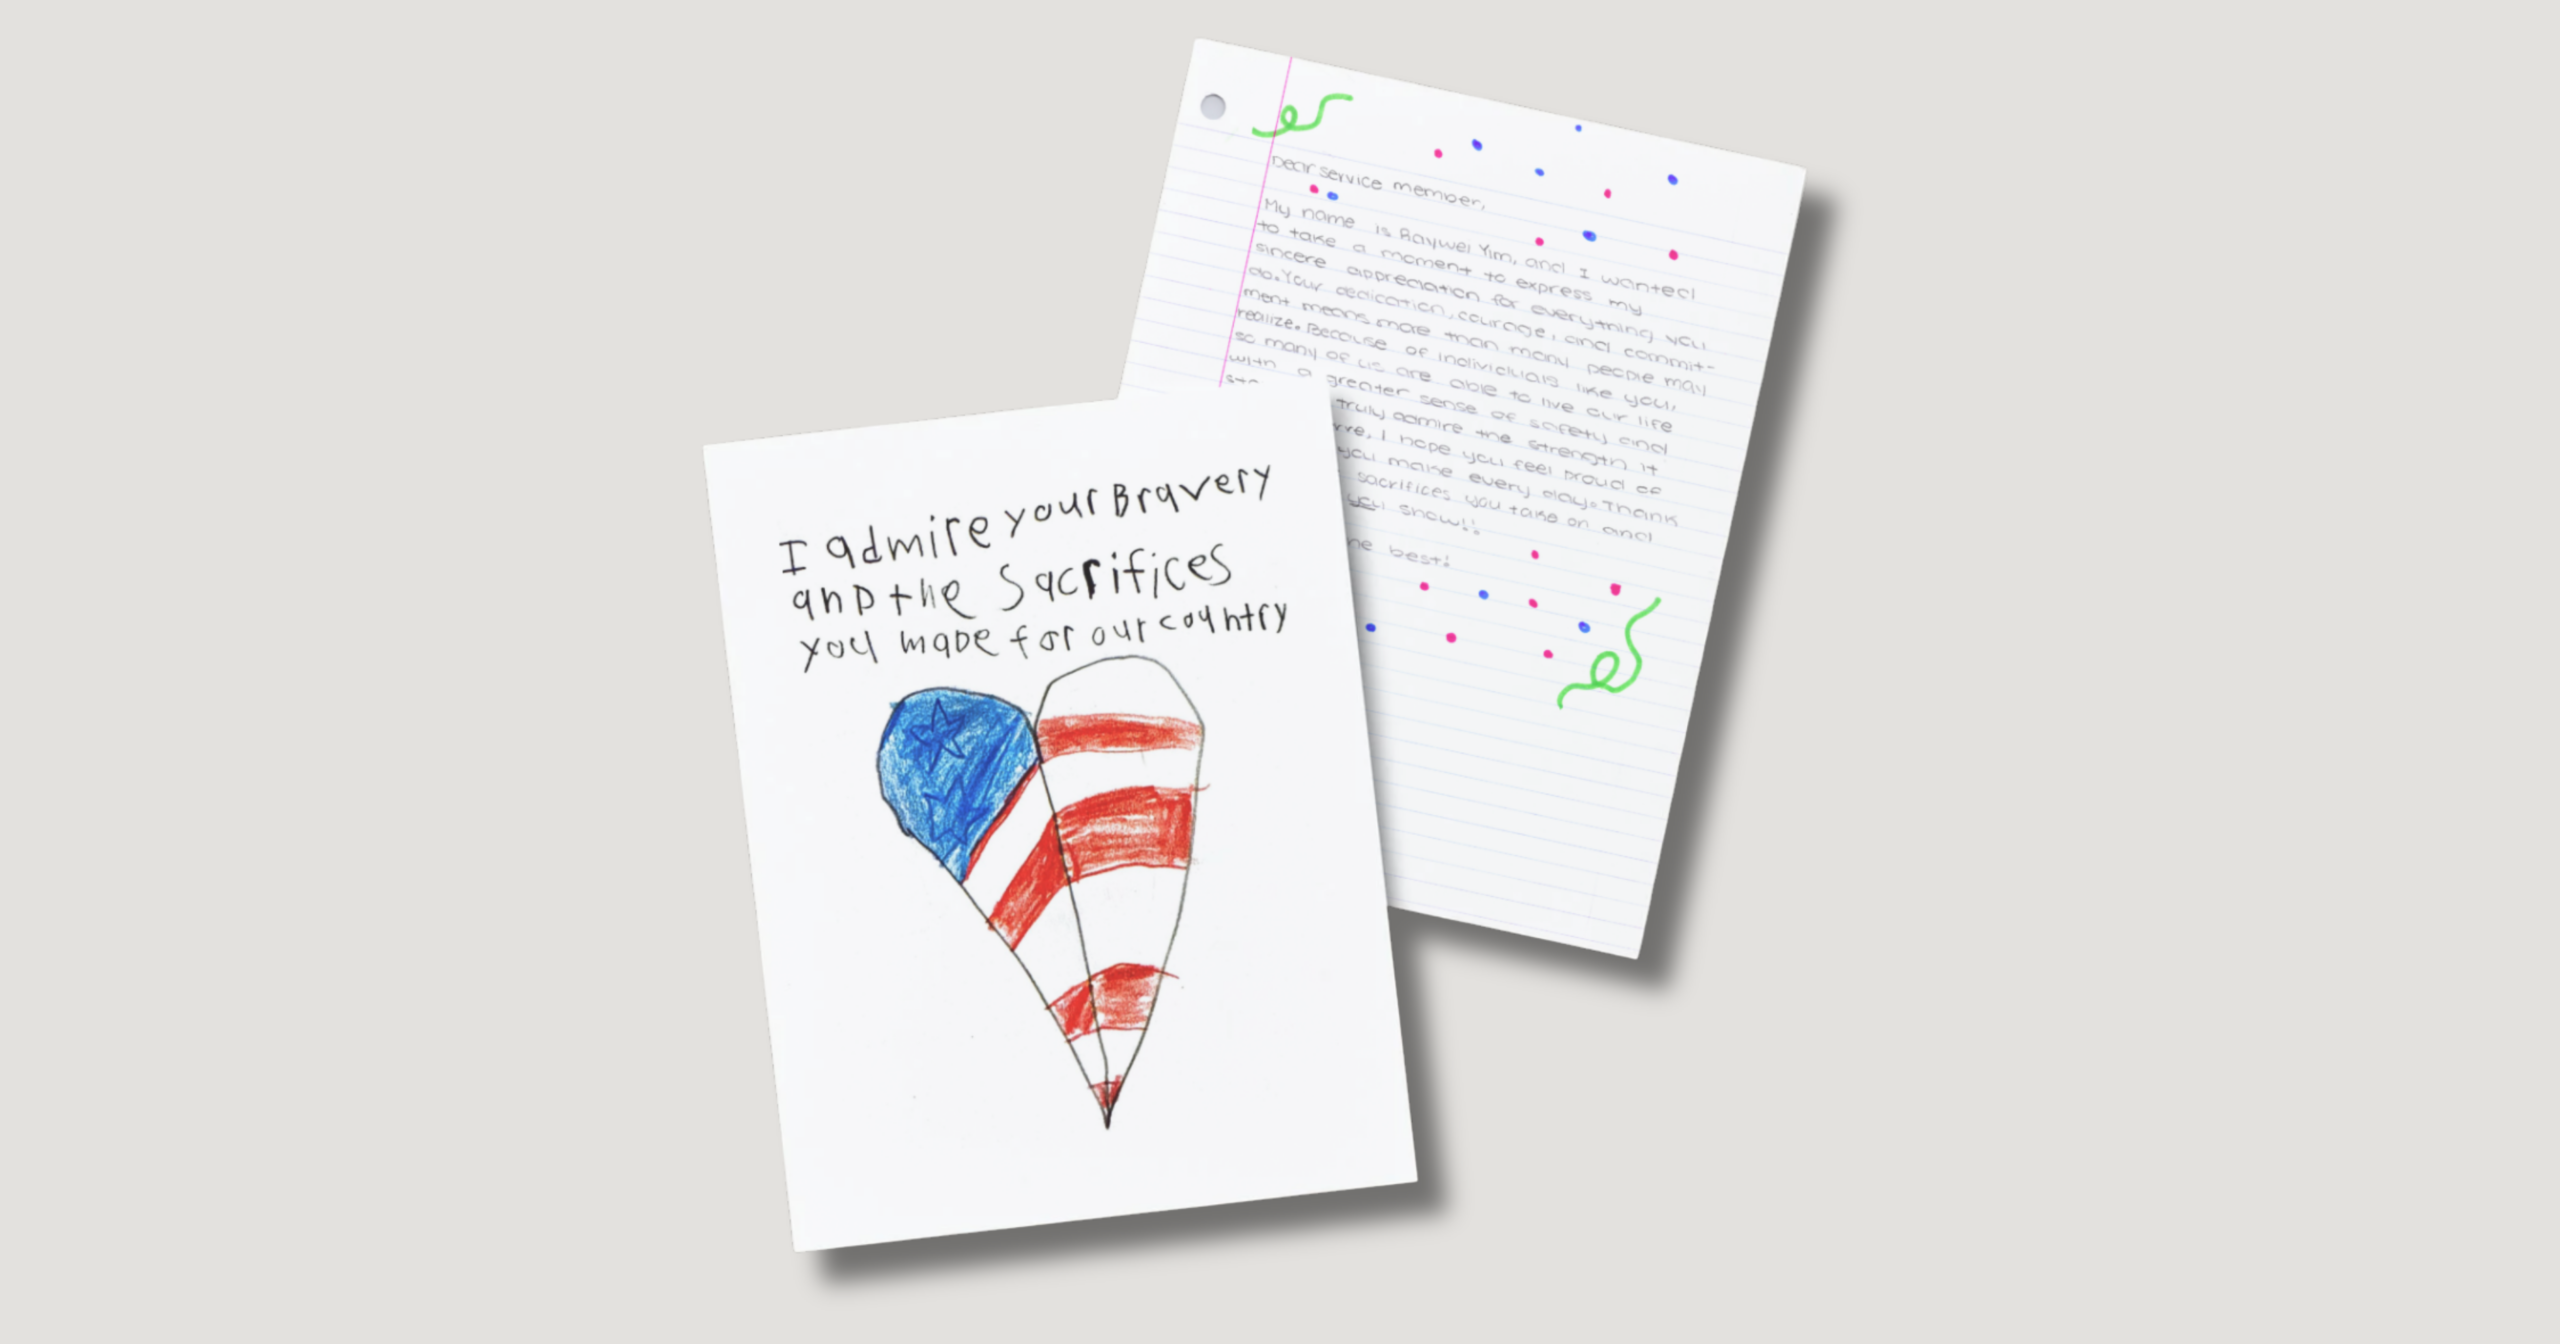 I admire your Bravery
and the Sacrifices
you made for our country
Dear service member,
My name is Raywei Yim, and I wanted
to take a moment to express my
sincere appreciation for everything you
do. Your dedication, courage, and commit-
ment means more than many people may
realize. Because of individuals like you,
so many of us are able to live our life
with a greater sense of safety and
truly admire the strength it
I hope you feel proud of
you make every day. Thank
sacrifices you take on and
you show!!
best!